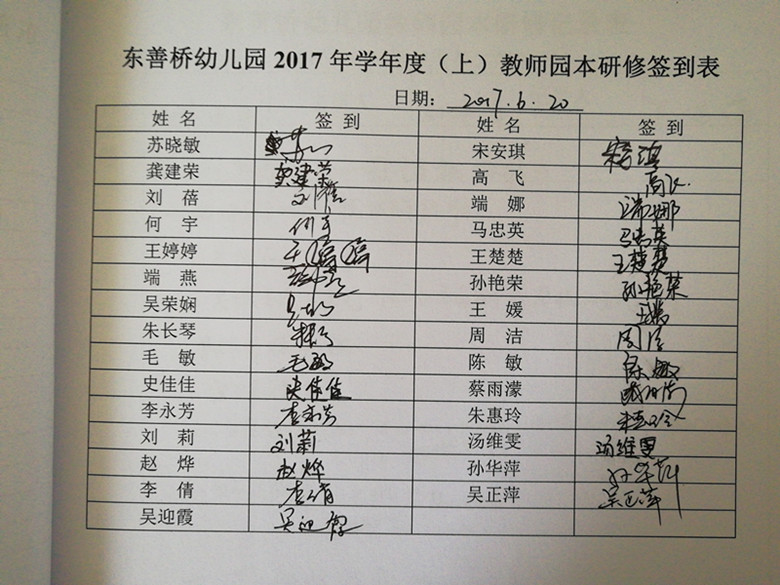 东善桥幼儿园 2017 年学年度（上）教师园本研修签到表
日期： 2017.6.20
姓 名 签 到 姓 名 签 到
苏晓敏 宋安琪
龚建荣 龚建荣 高 飞 高飞
刘 蓓 刘蓓 端 娜 端娜
何 宇 何宇 马忠英 马忠英
王婷婷 王婷婷 王楚楚 王楚楚
端 燕 孙艳荣 孙艳荣
吴荣娴 王 媛 王媛
朱长琴 周 洁 周洁
毛 敏 毛敏 陈 敏 陈敏
史佳佳 史佳佳 蔡雨濛
李永芳 李永芳 朱惠玲
刘 莉 刘莉 汤维雯 汤维雯
赵 烨 赵烨 孙华萍 孙华萍
李 倩 李倩 吴正萍 吴正萍
吴迎霞 吴迎霞